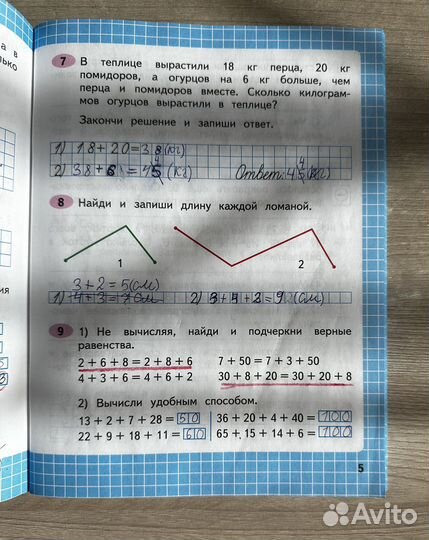 7 В теплице вырастили 18 кг перца, 20 кг
помидоров, а огурцов на 6 кг больше, чем
перца и помидоров вместе. Сколько килограм-
мов огурцов вырастили в теплице?
Закончи решение и запиши ответ.
1) 18+20=38(кг)
2) 38+6 = 44 (кг) Ответ: 44 (кг)
8 Найди и запиши длину каждой ломаной.
1 2
3+2=5(см)
1) 4+3=7см 2) 3+4+2=9 (см)
9 1) Не вычисляя, найди и подчеркни верные
равенства.
2 + 6 + 8 = 2 + 8 + 6 7 + 50 = 7 + 3 + 50
4 + 3 + 6 = 4 + 6 + 2 30 + 8 + 20 = 30 + 20 + 8
2) Вычисли удобным способом.
13 + 2 + 7 + 28 = 50 36 + 20 + 4 + 40 = 100
22 + 9 + 18 + 11 = 60 65 + 15 + 14 + 6 = 100
5
Avito